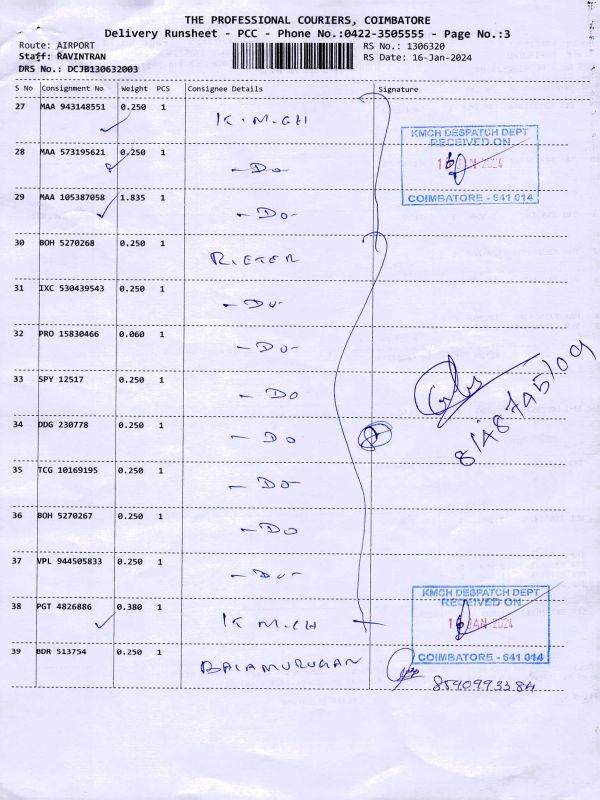 THE PROFESSIONAL COURIERS, COIMBATORE
Delivery Runsheet - PCC - Phone No.:0422-3505555 - Page No.:3
Route: AIRPORT RS No.: 1306320
Staff: RAVINTRAN RS Date: 16-Jan-2024
DRS No.: DCJB130632003
S No Consignment No Weight PCS Consignee Details Signature
27 MAA 943148551 0.250 1 K.M.CH
KMCH DESPATCH DEPT
RECEIVED ON
28 MAA 573195621 0.250 1 - Do -
JAN 2024
29 MAA 105387058 1.835 1 - Do -
COIMBATORE - 641 014
30 BOH 5270268 0.250 1 RIETER
31 IXC 530439543 0.250 1 - Do -
32 PRO 15830466 0.060 1 - Do -
33 SPY 12517 0.250 1 - Do
34 DDG 230778 0.250 1 - Do
35 TCG 10169195 0.250 1 - Do
36 BOH 5270267 0.250 1 - Do
37 VPL 944505833 0.250 1 - Do -
38 PGT 4826886 0.380 1 K M.CH
KMCH DESPATCH DEPT
RECEIVED ON
JAN 2024
COIMBATORE - 641 014
39 BDR 513754 0.250 1 BALAMURUGAN